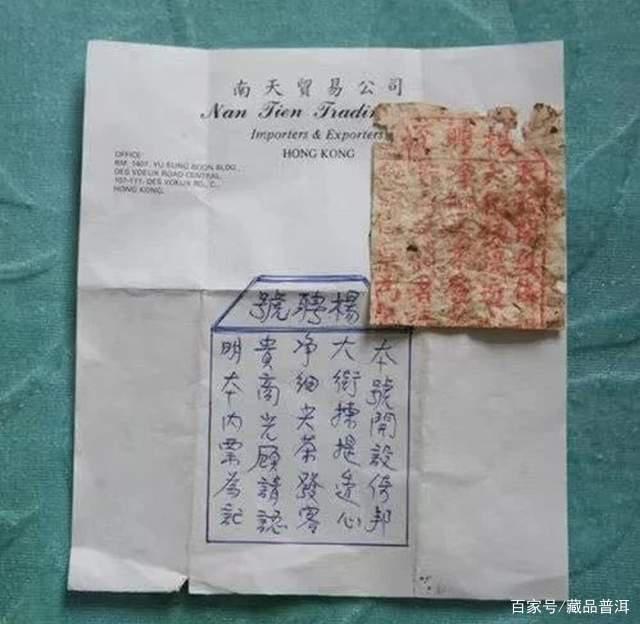 南天貿易公司
Nan Tien Tradin
Importers & Exporters
HONG KONG
OFFICE:
RM. 1407, YU SUNG BOON BLDG.,
DES VOEUX ROAD CENTRAL,
107-111, DES VOEUX RD., C.,
HONG KONG.
楊聘號
本號開設倚邦
大街揀提透心
净細尖茶發客
貴商光顧請認
明本内票為記
百家号/藏品普洱